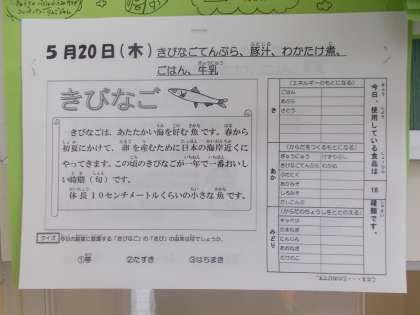 5月20日(木) きびなごてんぷら、豚汁、わかたけ煮、
ごはん、牛乳
きびなご
きびなごは、あたたかい海を好む魚です。春から
初夏にかけて、卵を産むために日本の海岸近くに
やってきます。この頃のきびなごが一年で一番おいし
い時期(旬)です。
体長10センチメートルくらいの小さな魚です。
クイズ 今日の献立に登場する「きびなご」の「きび」の由来は何でしょうか。
①帯 ②たすき ③はちまき
今日、使用している食品は 18 種類です。
き
(エネルギーのもとになる)
ごはん
あぶら
さとう
あか
(からだをつくるもとになる)
ぎゅうにゅう
きびなご
ぶたにく
あかみそ
しろみそ
みどり
(からだのちょうしをととのえる)
キャベツ
たまねぎ
にんじん
ごぼう
たけのこ